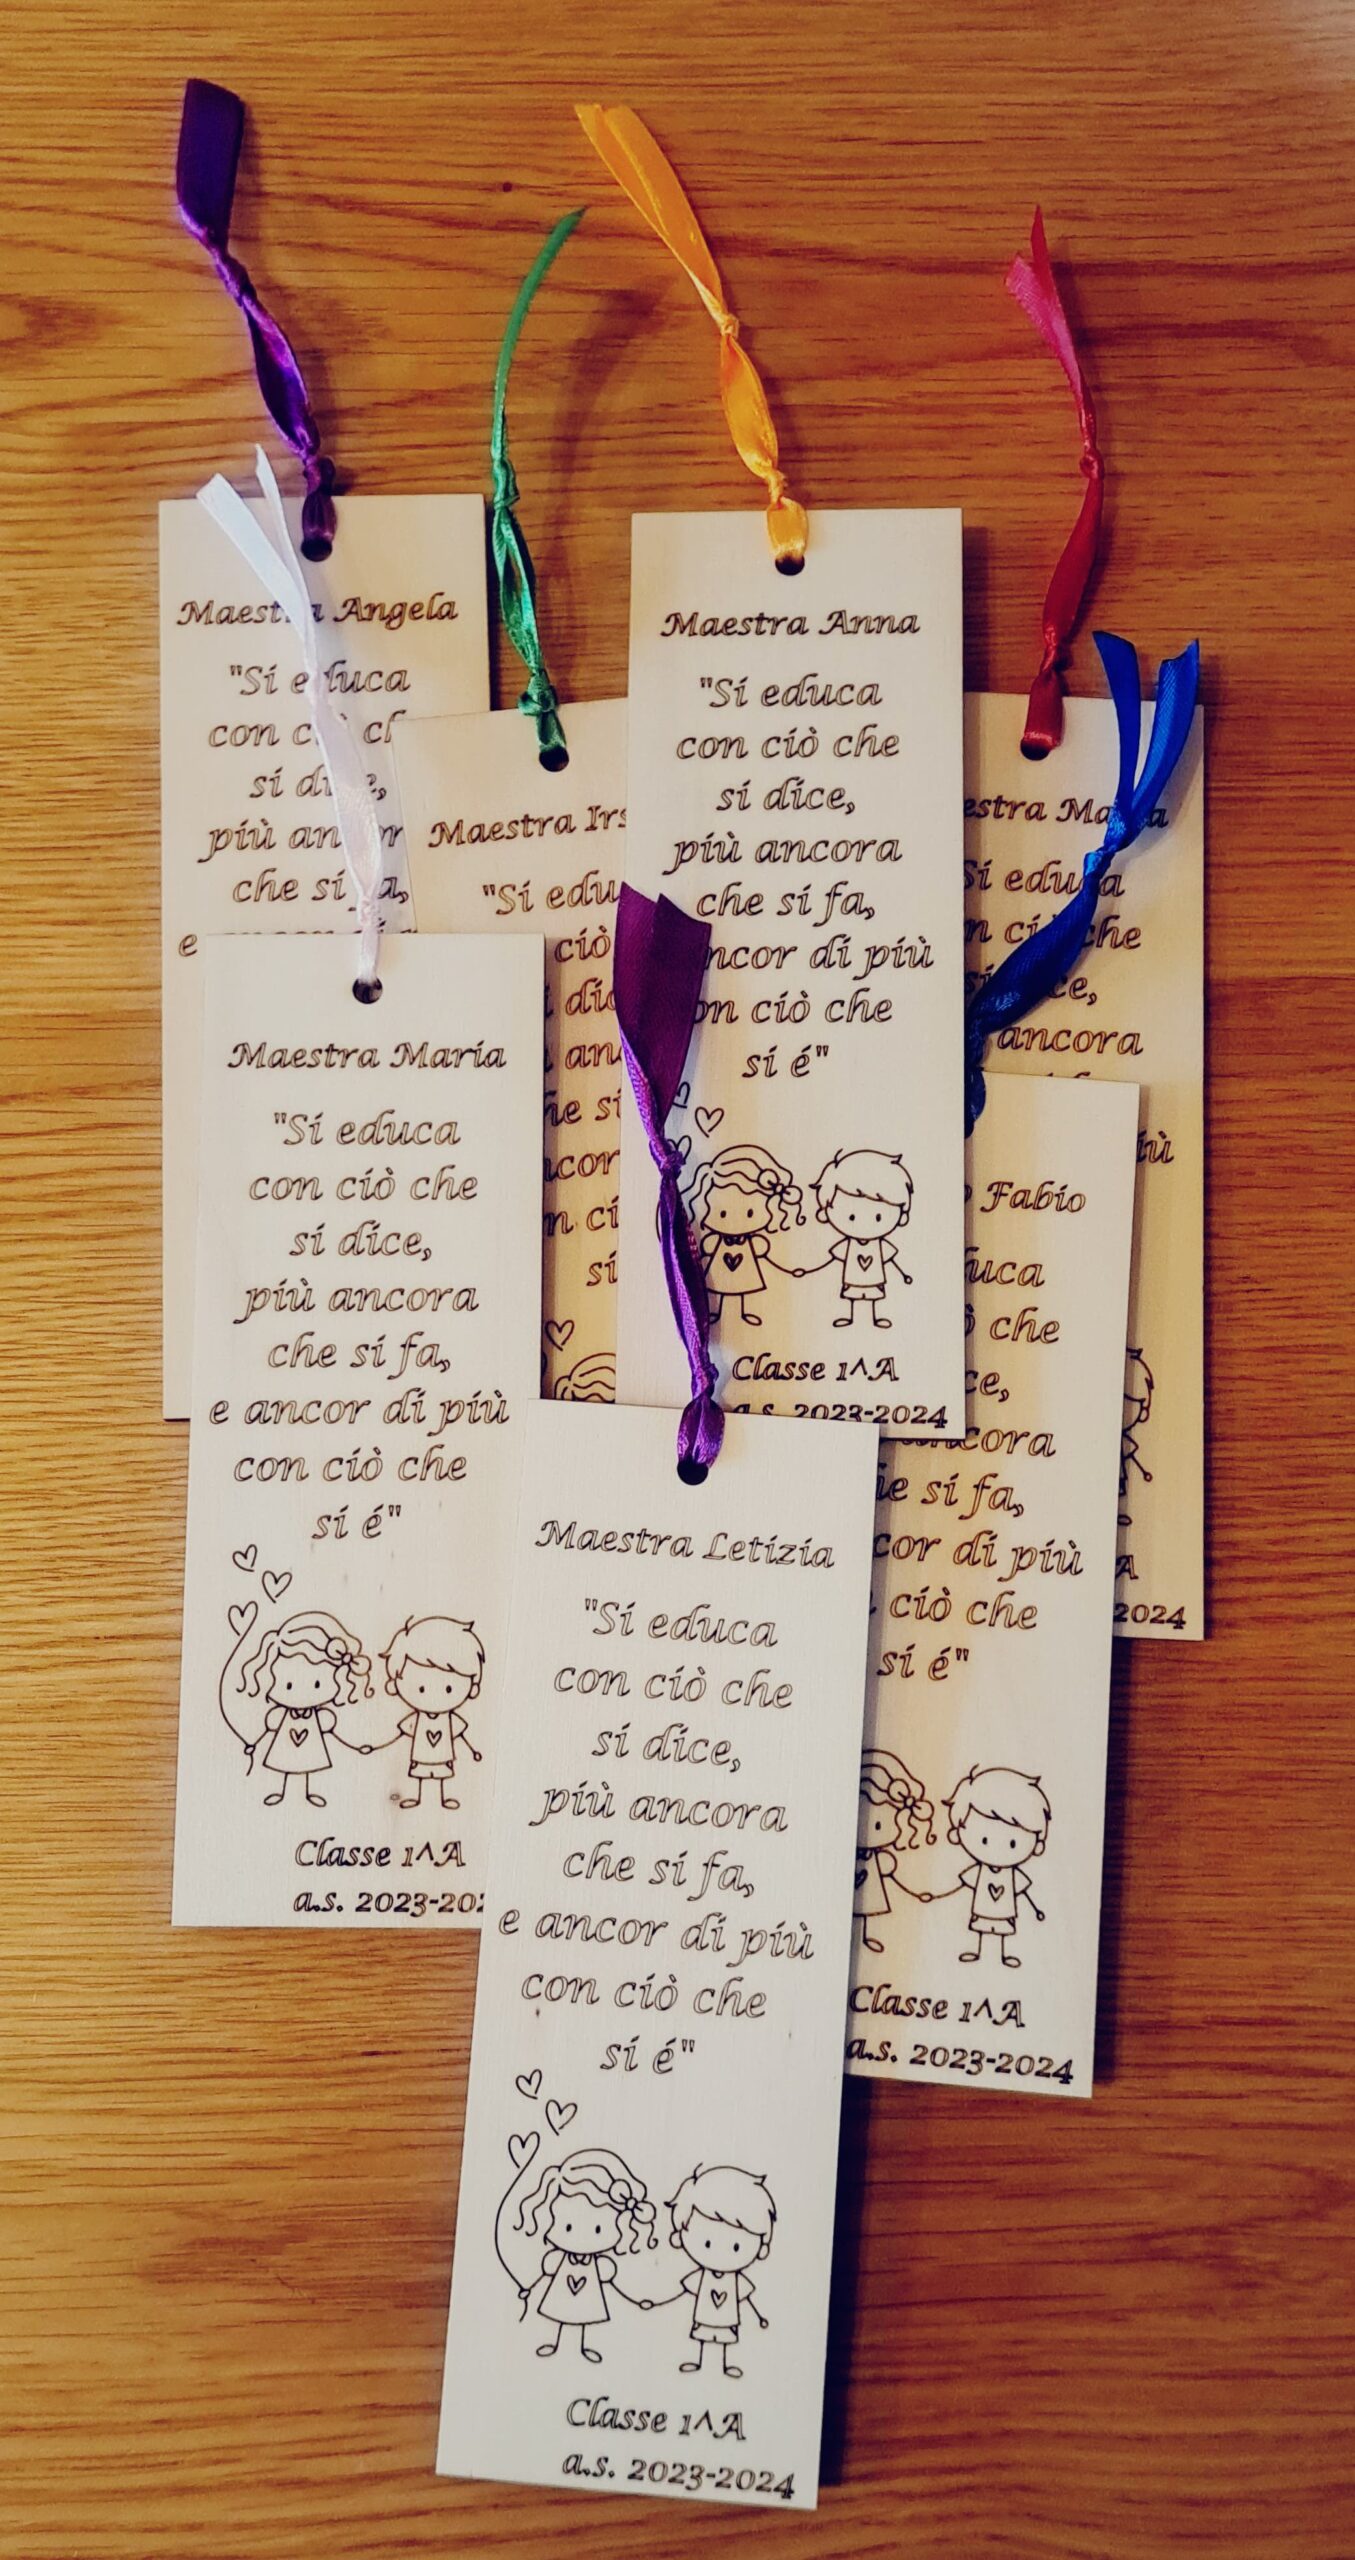 Maestra Angela
"Si educa
con ciò
si dice,
più
che si fa,
e
Maestra
"Si
ciò
si
Maestra Anna
"Si educa
con ciò che
si dice,
più ancora
che si fa,
ancor di più
con ciò che
si é"
Classe 1^A
a.s. 2023-2024
Maestra
Si educa
che
ancora
più
2024
Maestra Maria
"Si educa
con ciò che
si dice,
più ancora
che si fa,
e ancor di più
con ciò che
si é"
Classe 1^A
a.s.
Fabio
che
ancora
si fa,
di più
ciò che
si é"
Classe 1^A
a.s. 2023-2024
Maestra Letizia
"Si educa
con ciò che
si dice,
più ancora
che si fa,
e ancor di più
con ciò che
si é"
Classe 1^A
a.s. 2023-2024